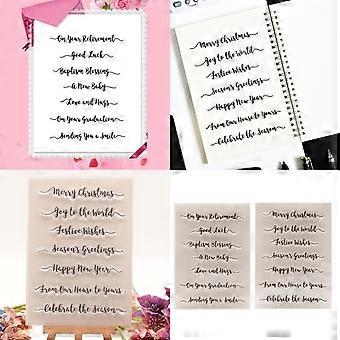 On Your Retirement
Good Luck
Baptism Blessing
A New Baby
Love and Hugs
On Your Graduation
Sending You a Smile
Merry Christmas
Joy to the World
Festive Wishes
Season's Greetings
Happy New Year
From Our House to Yours
Celebrate the Season
Merry Christmas
Joy to the World
Festive Wishes
Season's Greetings
Happy New Year
From Our House to Yours
Celebrate the Season
On Your Retirement
Good Luck
Baptism Blessing
A New Baby
Love and Hugs
On Your Graduation
Sending You a Smile
Merry Christmas
Joy to the World
Festive Wishes
Season's Greetings
Happy New Year
From Our House to Yours
Celebrate the Season